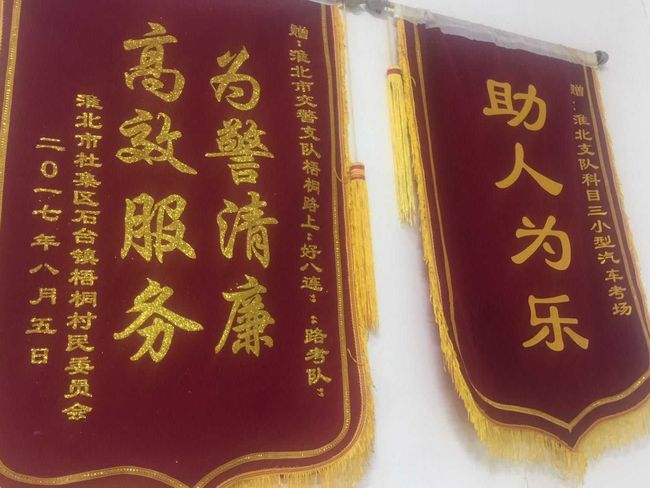 赠：淮北市交警支队梧桐路上：好八连：：路考队：
为警清廉
高效服务
淮北市杜集区石台镇梧桐村民委员会
二〇一七年八月五日
赠：淮北支队科目三小型汽车考场
助人为乐